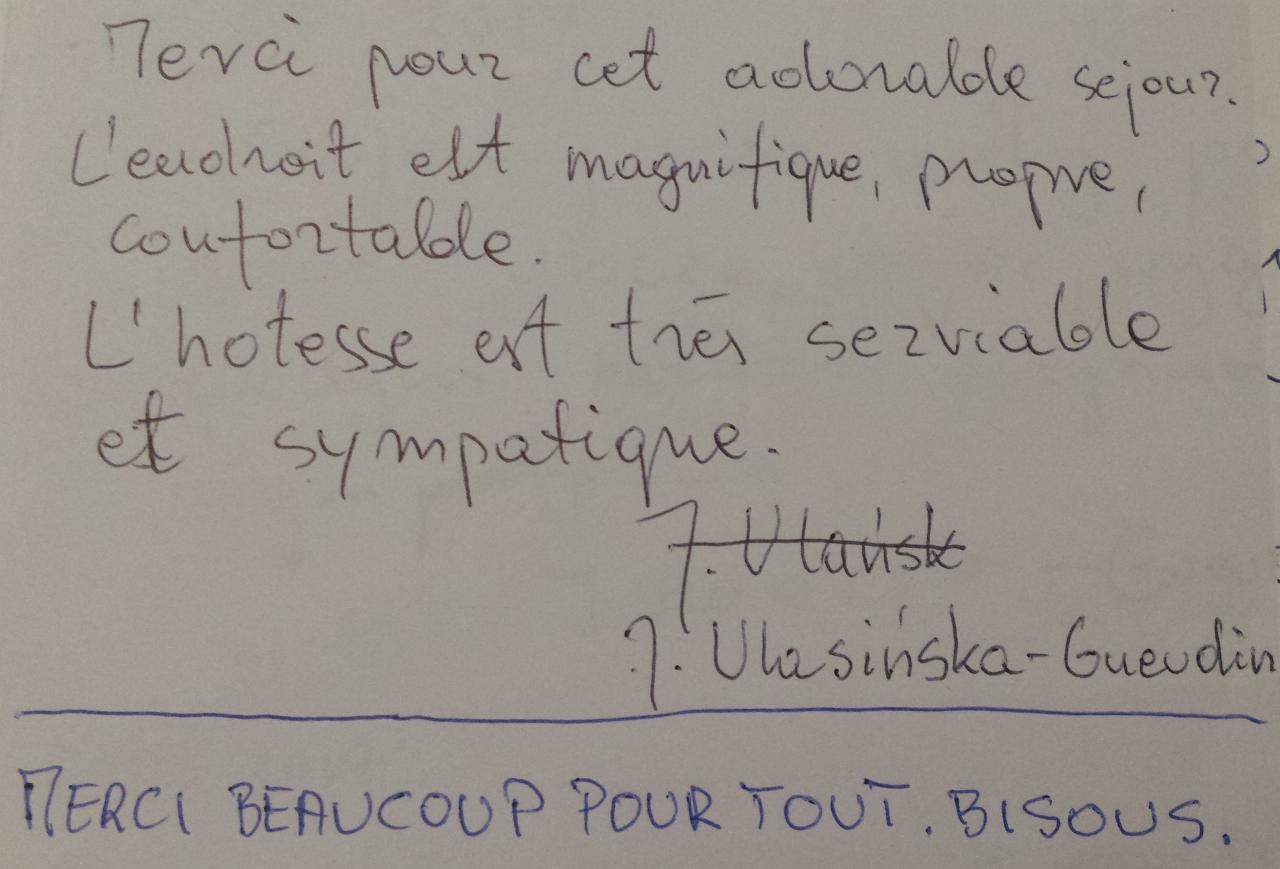 Merci pour cet adorable sejour.
L'endroit est magnifique, propre,
confortable.
L'hotesse est très serviable
et sympatique.
J. Ulańsk
J. Ulasińska-Guendin
MERCI BEAUCOUP POUR TOUT. BISOUS.